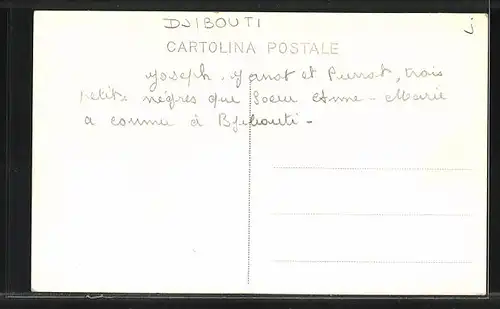 DJIBOUTI
J
CARTOLINA POSTALE
Joseph, Yanot et Pierrot, trois
petits nègres que Soeur Anne-Marie
a connu à Djibouti -